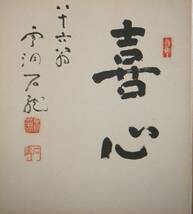 喜心
八十六翁
雲洞石龍